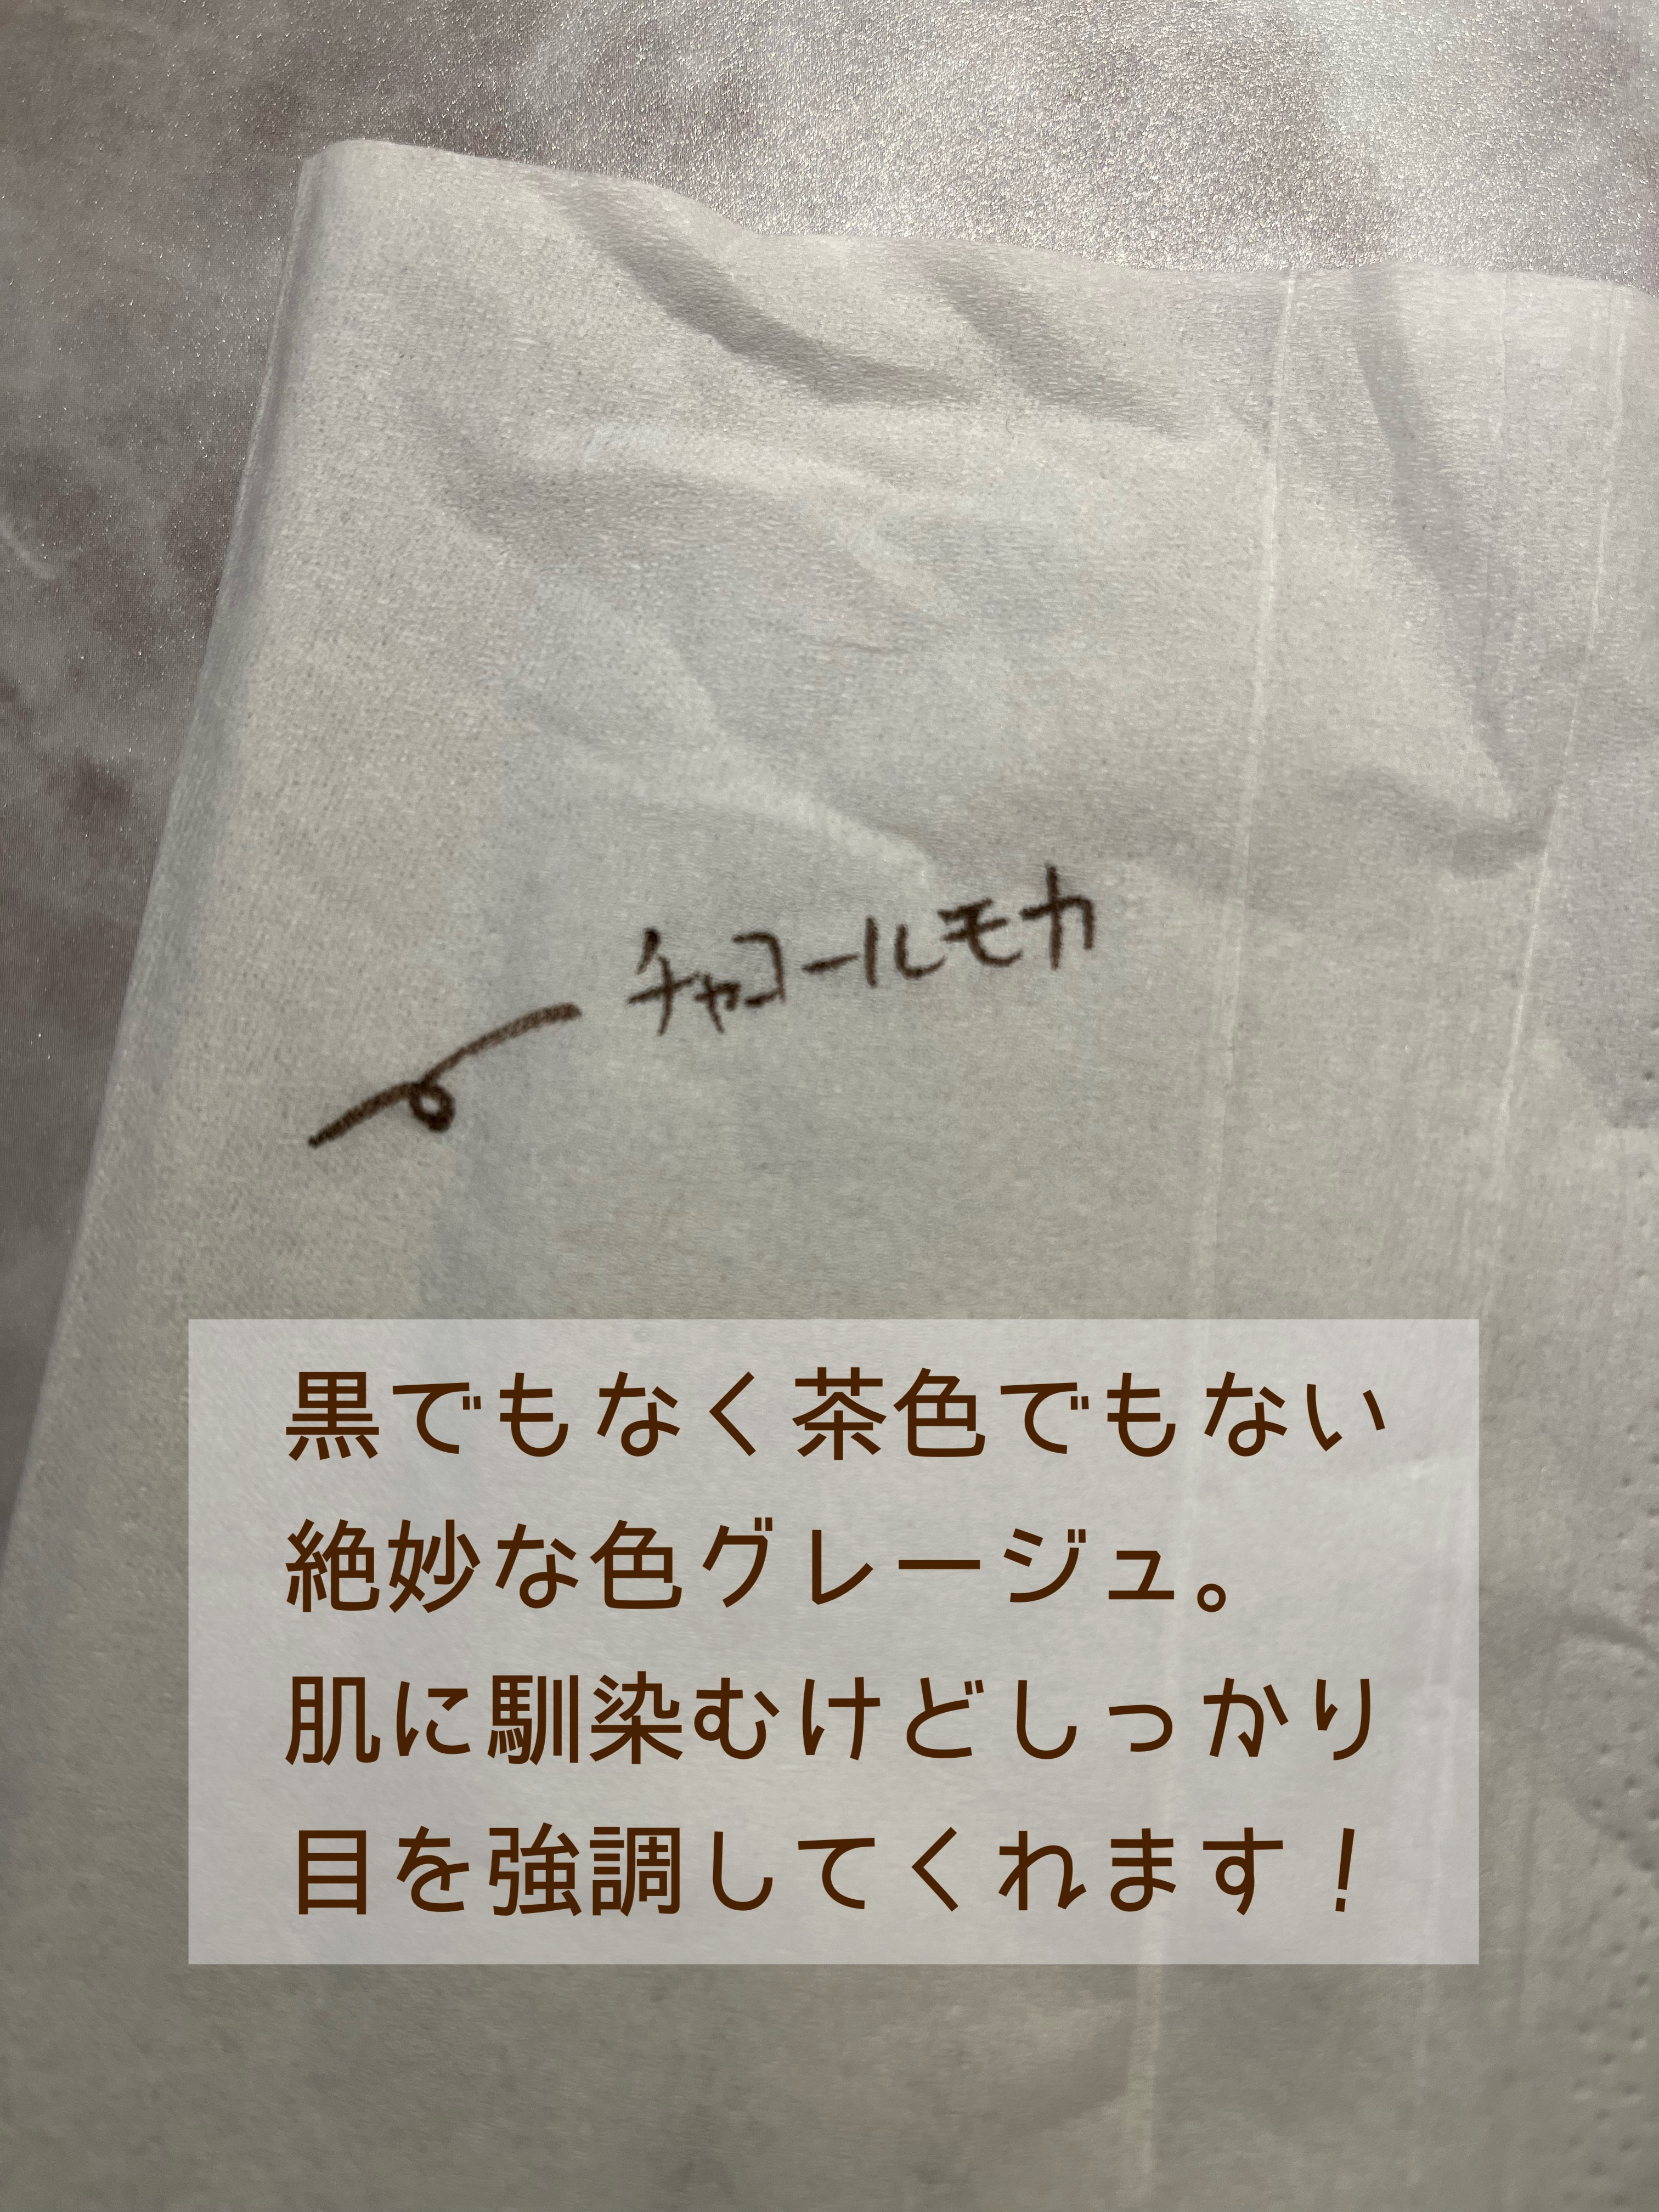 チャコールモカ
黒でもなく茶色でもない
絶妙な色グレージュ。
肌に馴染むけどしっかり
目を強調してくれます！